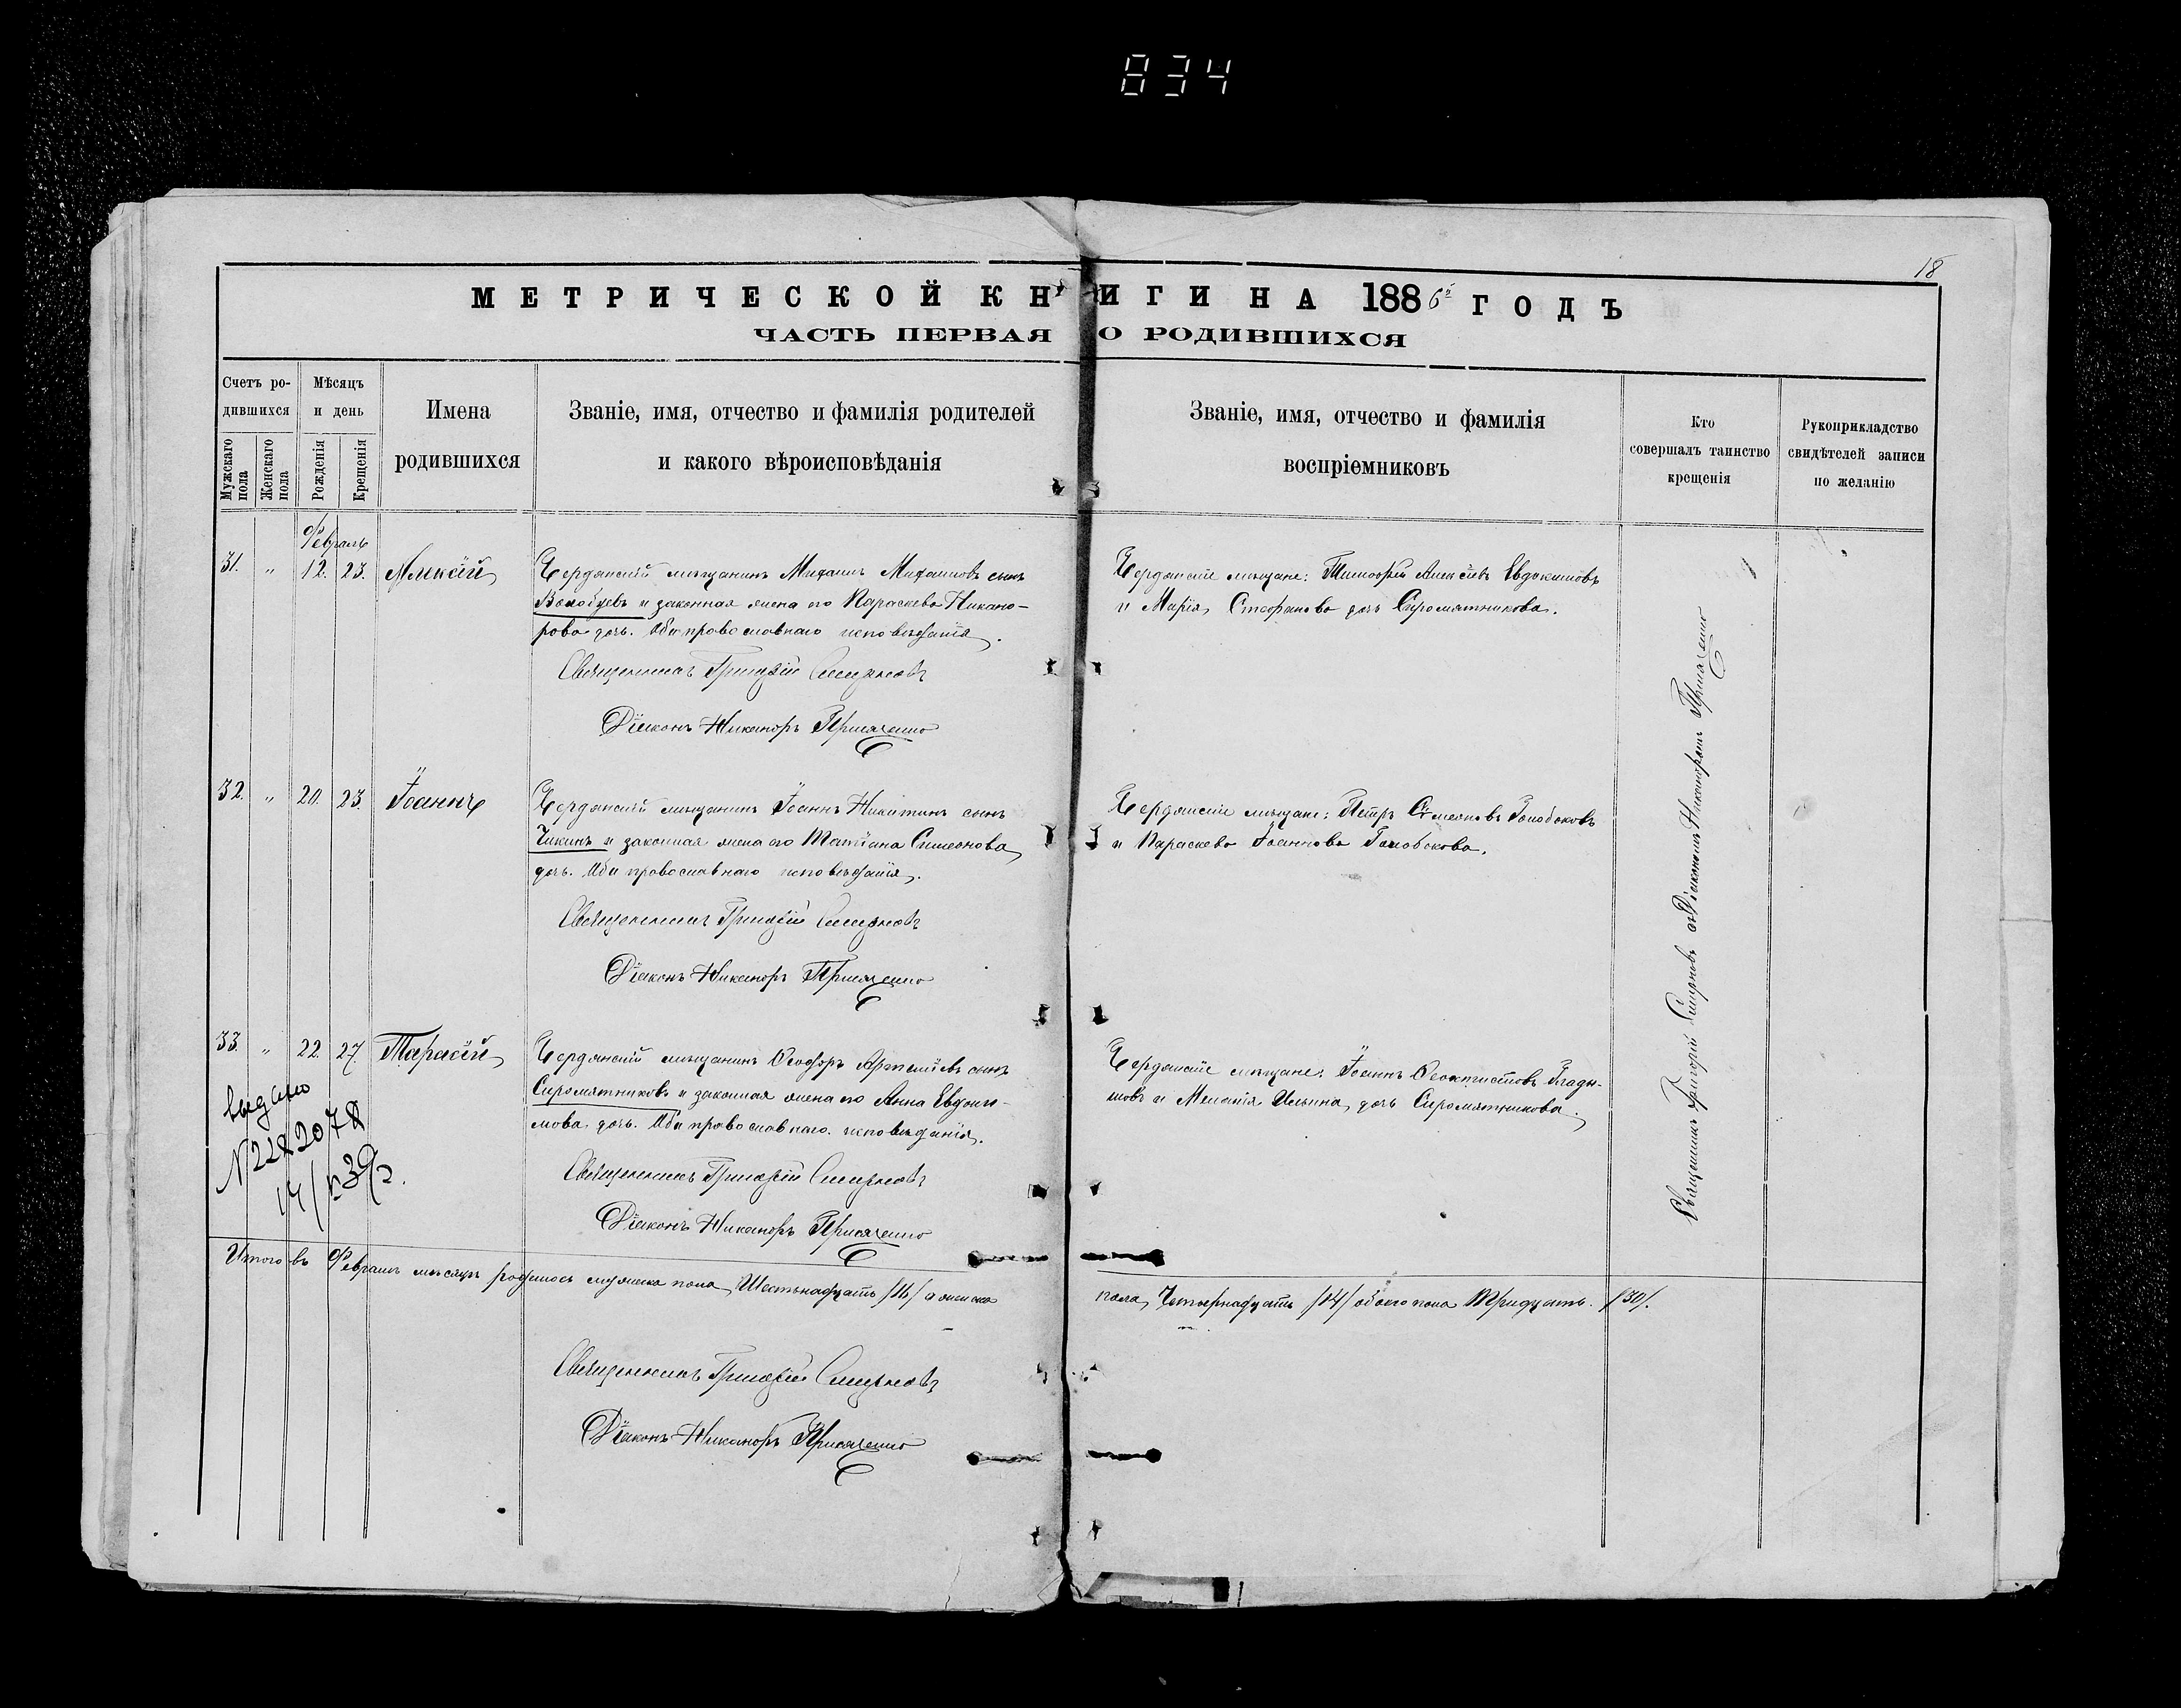 834
18
МЕТРИЧЕСКОЙ КНИГИ НА 1886й ГОДЪ
ЧАСТЬ ПЕРВАЯ О РОДИВШИХСЯ
Счетъ ро-
дившихся
Мужскаго пола
Женскаго пола
Мѣсяцъ
и день
Рожденія
Крещенія
Имена
родившихся
Званіе, имя, отчество и фамилія родителей
и какого вѣроисповѣданія
Званіе, имя, отчество и фамилія
воспріемниковъ
Кто
совершалъ таинство
крещенія
Рукоприкладство
свидѣтелей записи
по желанію
Февраль
31. " 12. 23.
Бердянскій мѣщанинъ Михаилъ Михаиловъ сынъ
и законная жена его Параскева Никано-
рова дочь. Оба православнаго исповѣданія.
Священникъ Григорій Смирновъ
Діаконъ Никаноръ
Бердянскіе мѣщане: Тимофей Алексѣевъ Евдокимовъ
и Марія Стефанова дочь Сыромятникова.
32. " 20. 23. Іоаннъ
Бердянскій мѣщанинъ Іоаннъ Никитинъ сынъ
Чикинъ и законная жена его Татіана Симеонова
дочь. Оба православнаго исповѣданія.
Священникъ Григорій Смирновъ
Діаконъ Никаноръ
Бердянскіе мѣщане: Петръ Симеоновъ Голобоковъ
и Параскева Іоаннова Голобокова.
33. " 22. 27. Тарасій
Бердянскій мѣщанинъ Ѳеодоръ Артеміевъ сынъ
Сыромятниковъ и законная жена его Анна Евдоки-
мова дочь. Оба православнаго исповѣданія.
Священникъ Григорій Смирновъ
Діаконъ Никаноръ
Бердянскіе мѣщане: Іоаннъ Ѳеоктистовъ Глады-
шовъ и Меланія Ильина дочь Сыромятникова.
выдано
Священникъ Григорій Смирновъ съ Діакономъ Никаноромъ
Итого въ Февралѣ мѣсяцѣ родилось мужска пола Шестьнадцать /16/ а женска
пола Четырнадцать /14/ обоего пола Тридцать. /30/.
Священникъ Григорій Смирновъ
Діаконъ Никаноръ